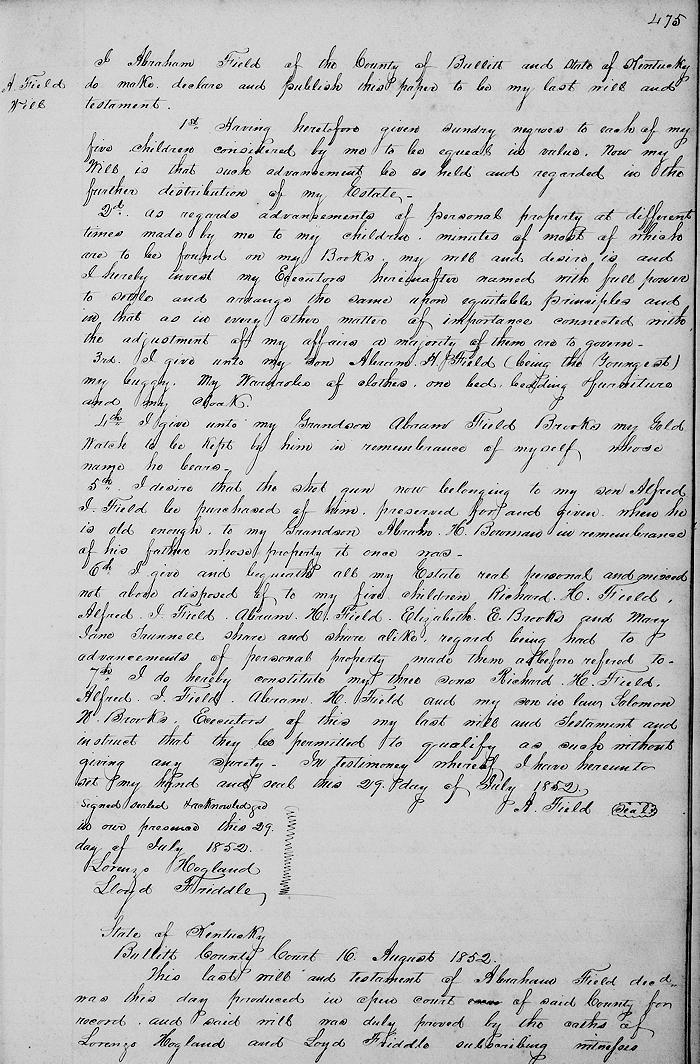 475
A. Field
Will
I Abraham Field of the County of Bullitt and State of Kentucky
do make. declare and publish this paper to be my last will and
testament.
1st Having heretofore given sundry negroes to each of my
five children considered by me to be equal in value. Now my
Will is that such advancement be so held and regarded in the
further distribution of my Estate –
2d. as regards advancements of personal property at different
times made by me to my children. minutes of most of which
are to be found on my Books. my will and desire is and
I hereby invest my Executors hereinafter named with full power
to settle and arrange the same upon equitable principles and
in that as in every other matter of importance connected with
the adjustment of my affairs a majority of them are to govern –
3rd. I give unto my son Abram. H Field (being the Youngest)
my buggy. My Wardrobe of clothes. one bed. bedding & furniture
and my Cloak.
4th I give unto my Grandson Abram Field Brooks my Gold
Watch to be kept by him in remembrance of myself whose
name he bears –
5th. I desire that the shot gun now belonging to my son Alfred
I. Field be purchased of him. preserved for and given when he
is old enough. to my Grandson Abrah. H. Bowman in remembrance
of his father whose property it once was –
6th I give and bequeath all my Estate real personal and mixed
not above disposed of to my five children Richard. H. Field.
Alfred. I. Field. Abram. H. Field. Elizabeth. E. Brooks and Mary
Jane Trunnell share and share alike. regard being had to
advancements of personal property made them as before refered to –
7th I do hereby constitute my three sons Richard. H. Field.
Alfred. I. Field. Abram. H. Field and my son in law Solomon
N. Brooks. Executors of this my last will and Testament and
instruct that they be permitted to qualify as such without
giving any surety – In testimony whereof I have hereunto
set my hand and seal this 29 day of July 1852.
A. Field Seal
Signed sealed & acknowledged
in our presence this 29.
day of July 1852.
Lorenzo Hogland
Lloyd Friddle
State of Kentucky
Bullitt County Court 16. August 1852.
This last will and testament of Abraham Field decd.
was this day produced in open court of said County for
record. and said will was duly proved by the oaths of
Lorenzo Hogland and Loyd Friddle subscribing witnesses